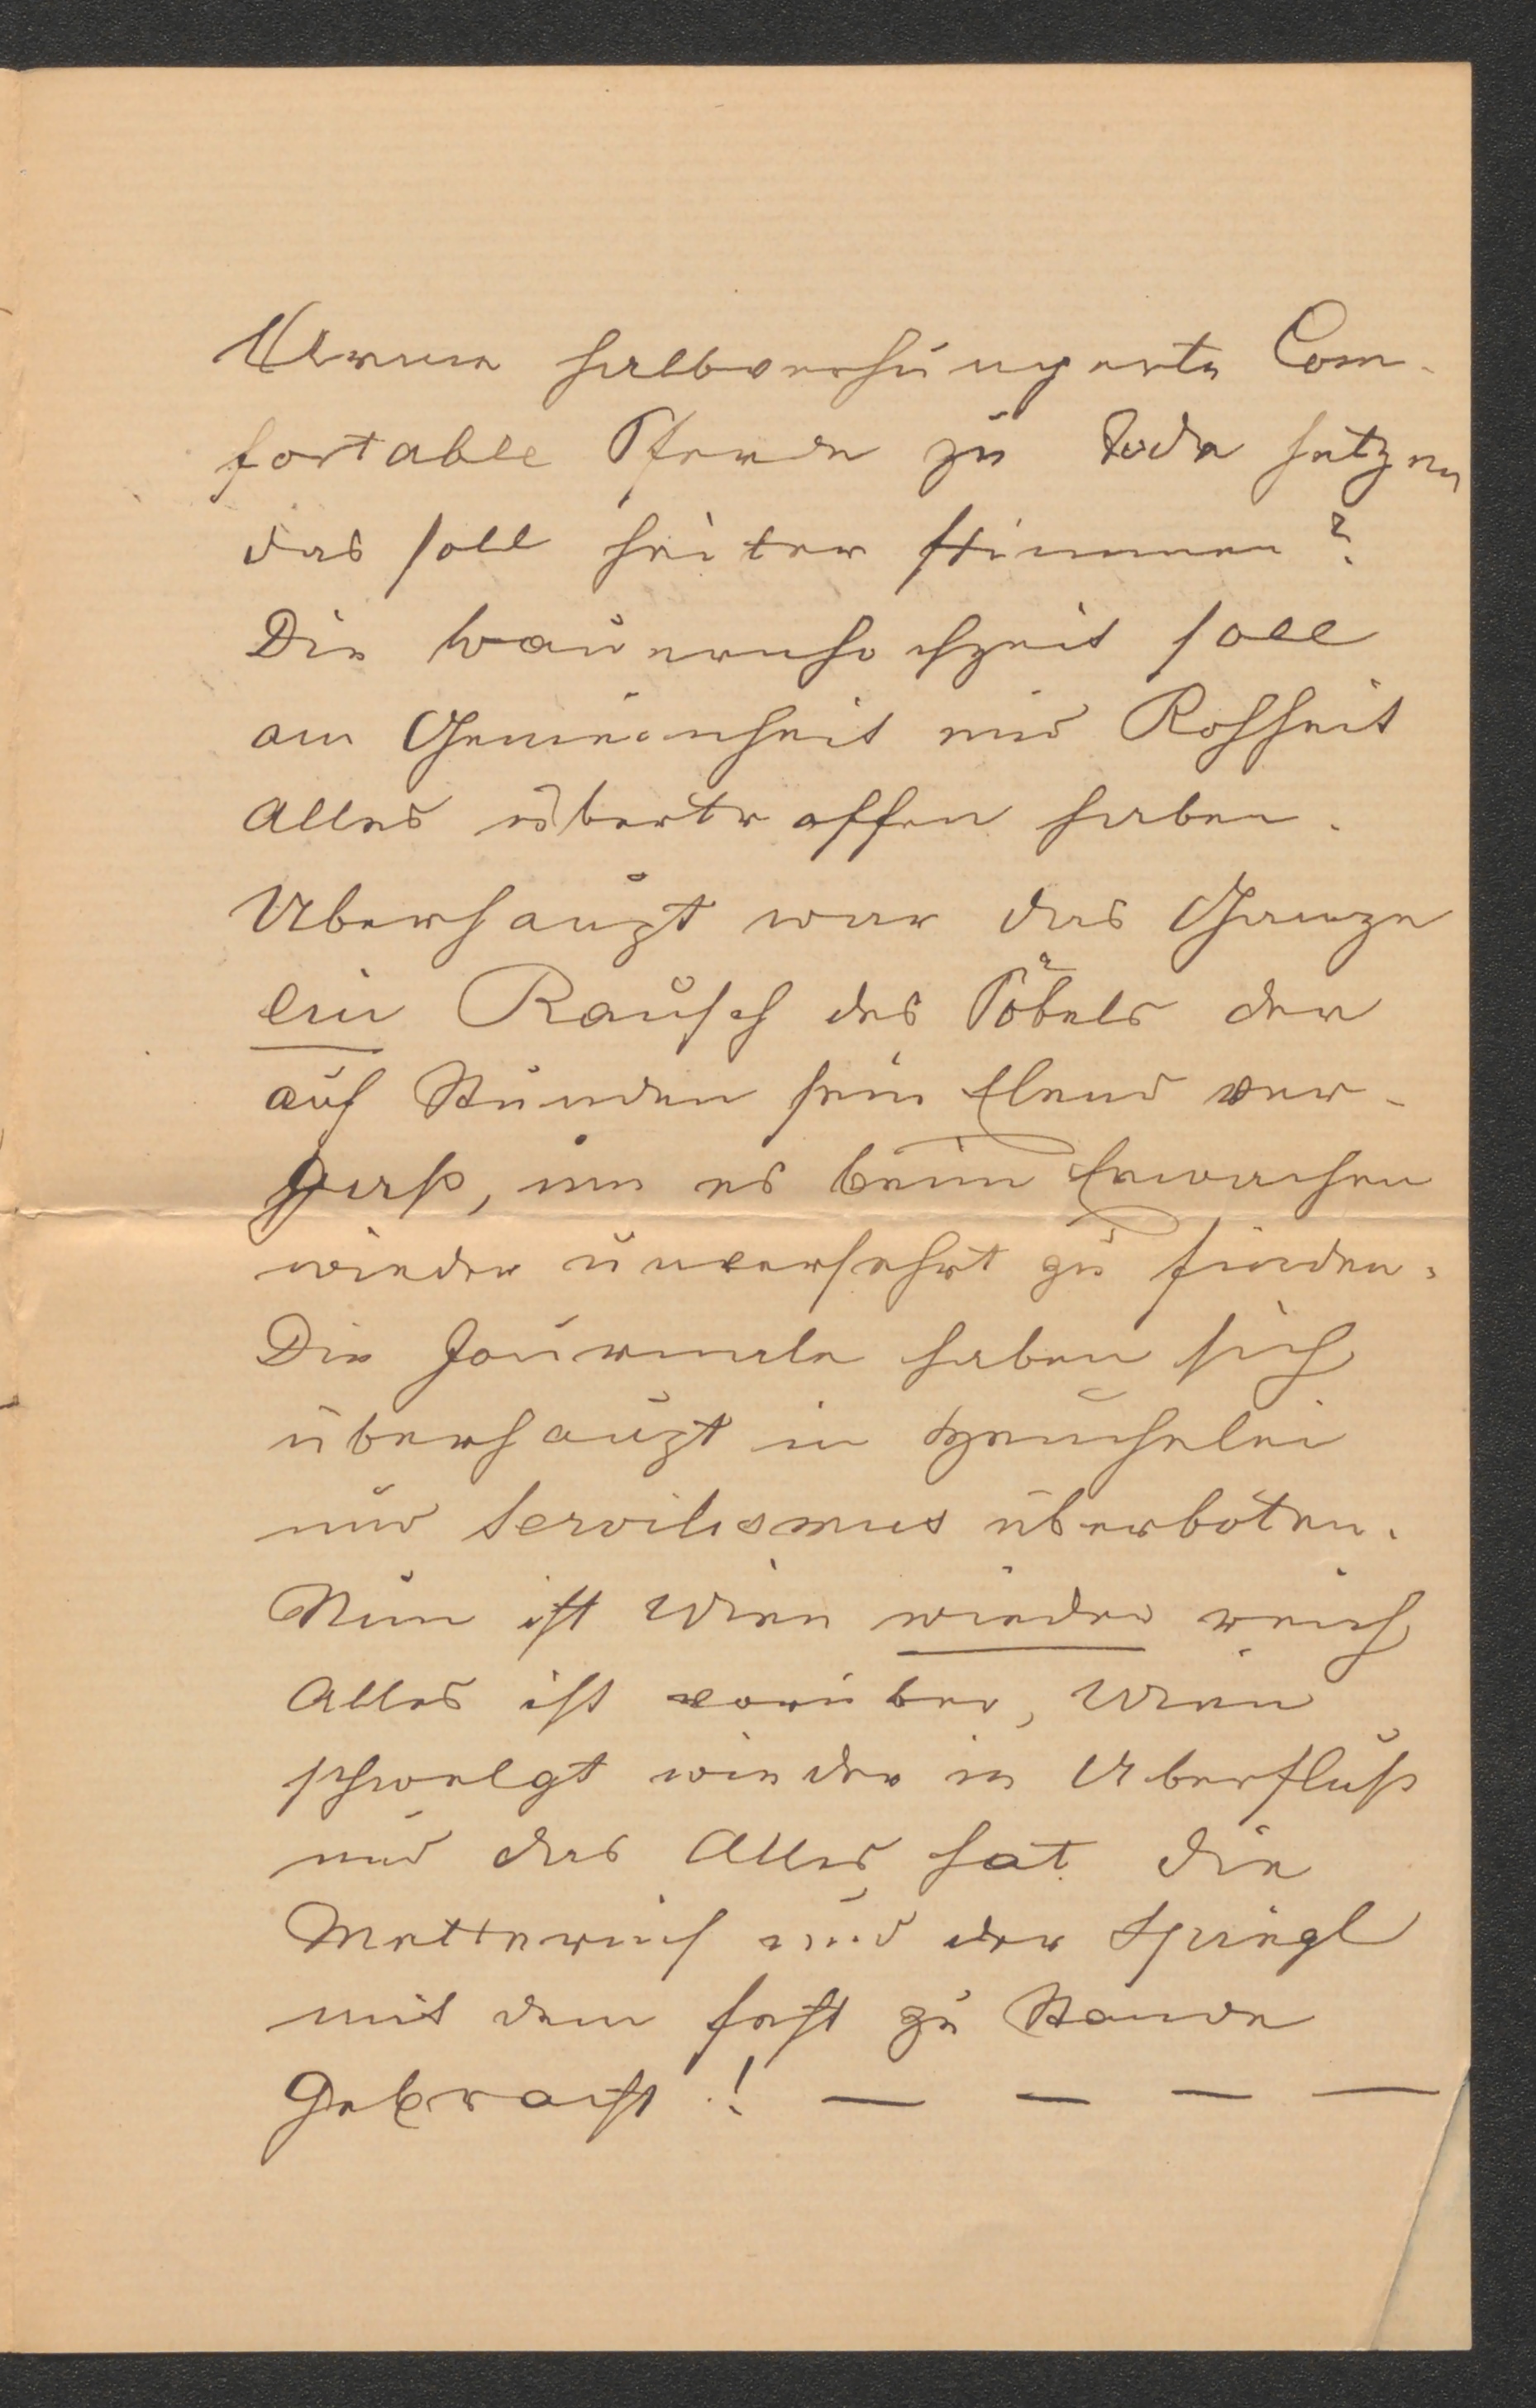 Arme halbverhungerte Com-
fortable Pferde zu Tode hetzen
das soll heiter stimmen?
Die Bauernhochzeit soll
an Gemeinheit und Rohheit
Alles übertroffen haben.
Uberhaupt war das Ganze
ein Rausch des Pöbels der
auf Stunden sein Elend ver-
gaß, um es beim Erwachen
wieder unversehrt zu finden.
Die Journale haben sich
überhaupt in Heuchelei
und Servilismus überboten.
Nun ist Wien wieder reich
Alles ist vorüber, Wien
schwelgt wieder in Uberfluß
und das Alles hat die
Metternich und der Spiegl
mit dem Fest zu Stande
gebracht! — — — —